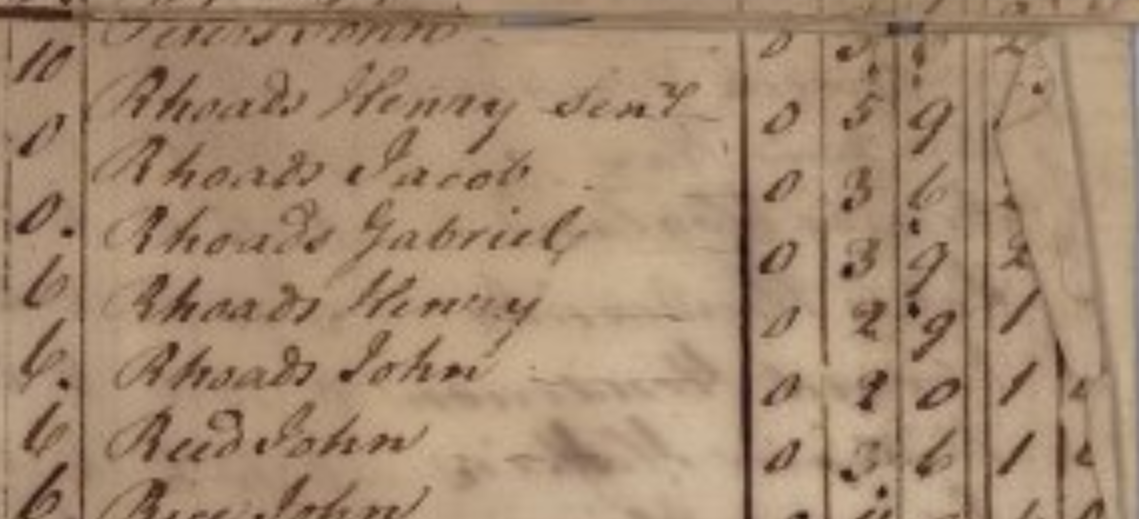 10
Rhoads Henry Senr 0 5 9
0 Rhoads Jacob 0 3 6
0. Rhoads Gabriel 0 3 9 2
6 Rhoads Henry 0 2 9 1
6. Rhoads John 0 2 0 1
6 Reed John 0 3 6 1
6. John